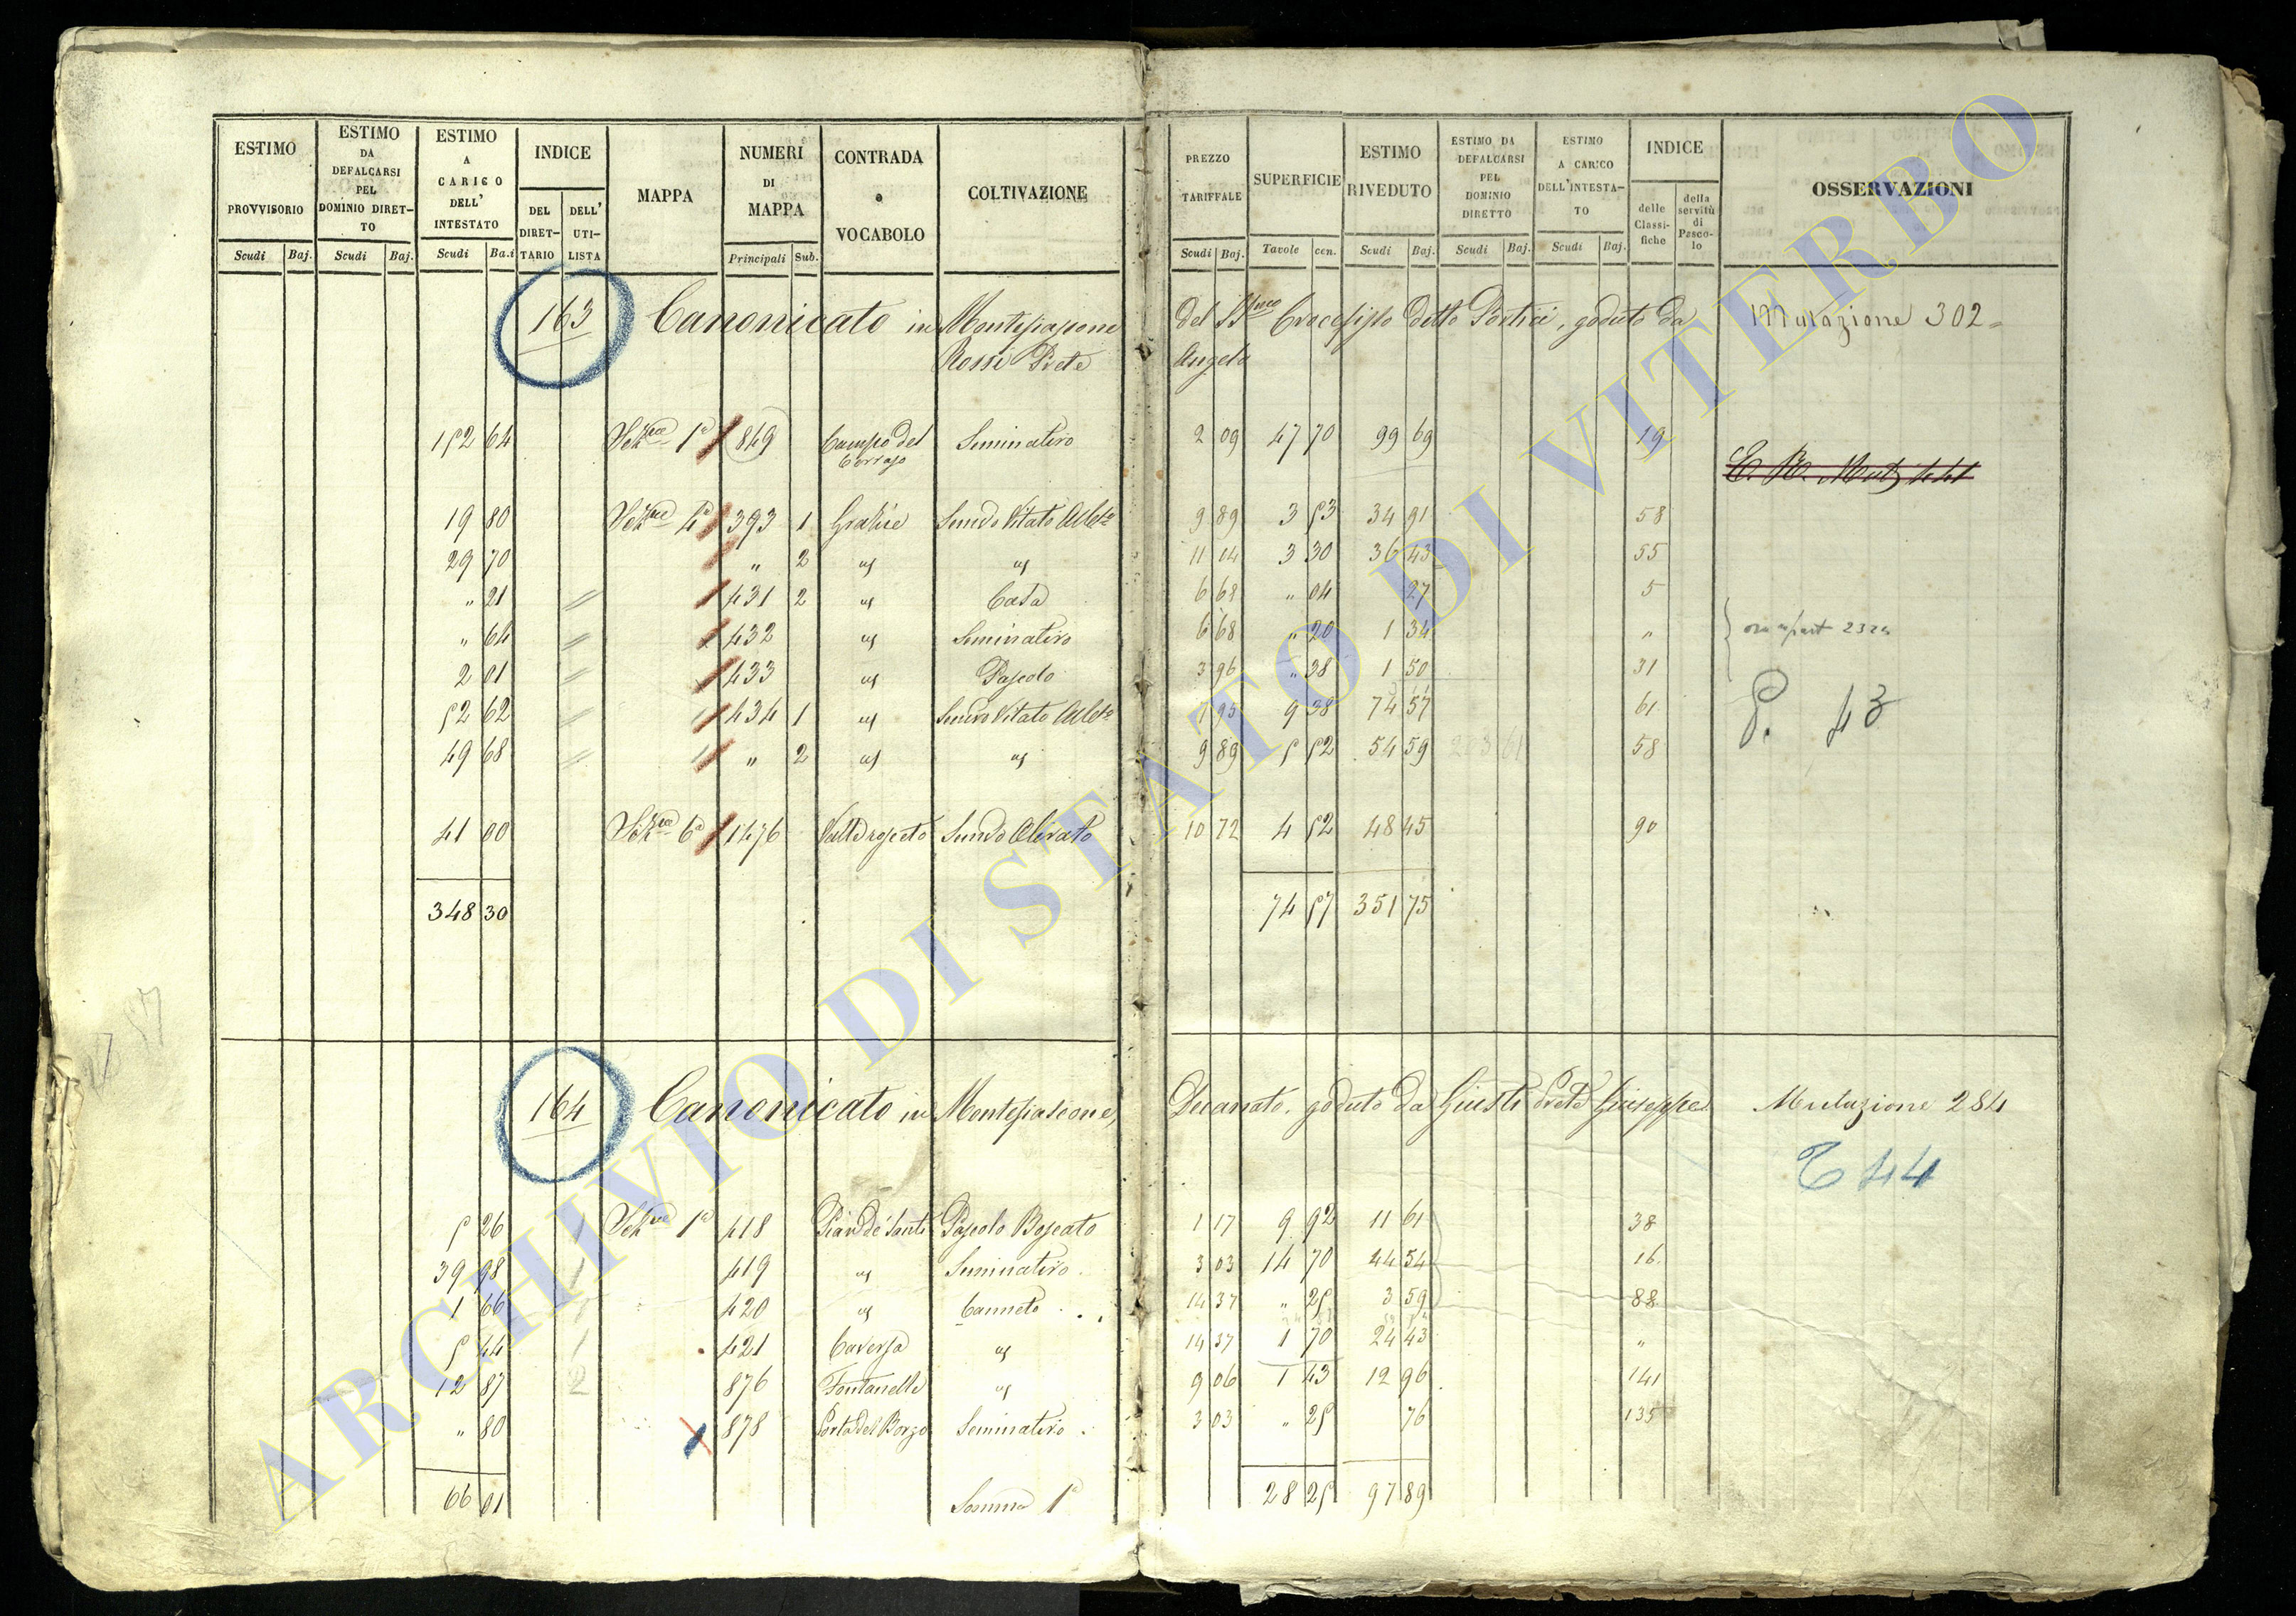 ESTIMO PROVVISORIO Scudi Baj.
ESTIMO DA DEFALCARSI PEL DOMINIO DIRET-TO Scudi Baj.
ESTIMO A CARICO DELL' INTESTATO Scudi Ba.i
INDICE DEL DIRET-TARIO DELL' UTI-LISTA
MAPPA
NUMERI DI MAPPA Principali Sub.
CONTRADA o VOCABOLO
COLTIVAZIONE
PREZZO TARIFFALE Scudi Baj.
SUPERFICIE Tavole cen.
ESTIMO RIVEDUTO Scudi Baj.
ESTIMO DA DEFALCARSI PEL DOMINIO DIRETTO Scudi Baj.
ESTIMO A CARICO DELL'INTESTA-TO Scudi Baj.
INDICE delle Classi-fiche della servitù di Pasco-lo
OSSERVAZIONI
163 Canonicato in Montefiascone del SSmo Crocefisso detto Portici, goduto da Mutazione 302
Rossi Prete Angelo
152 64 Sezne 1a 849 Campo del Seminativo 2 09 47 70 99 69 19
19 80 Sezne 4a 393 1 Grazie Semvo Vitato 9 89 3 53 34 91 58
29 70 " 2 11 14 3 30 36 43 55
" 21 431 2 Casa 6 68 " 04 27 5
" 64 432 Seminativo 6 68 " 20 1 34 "
2 01 433 Pascolo 3 96 " 38 1 50 31
52 62 434 1 Semvo Vitato 7 95 9 38 74 57 61
49 68 " 2 9 89 5 52 54 59 203 61 58
P. 43
41 00 Sezne 6a 1476 Semvo Olivato 10 72 4 52 48 45 90
348 30 74 57 351 75
164 Canonicato in Montefiascone, Decanato, goduto da Giusti Prete Giuseppe Mutazione 284
44
5 26 Sezne 1a 418 Pian de Santi Pascolo Boscato 1 17 9 92 11 61 38
39 98 1 419 Seminativo 3 03 14 70 44 54 16
1 66 420 Canneto 14 37 " 25 3 59 88
5 44 1 421 14 37 1 70 24 43 "
12 87 2 876 Fontanelle 9 06 1 43 12 96 141
" 80 878 Porta del Borgo Seminativo 3 03 " 25 76 135
66 01 Somma 1a 28 25 97 89
ARCHIVIO DI STATO DI VITERBO